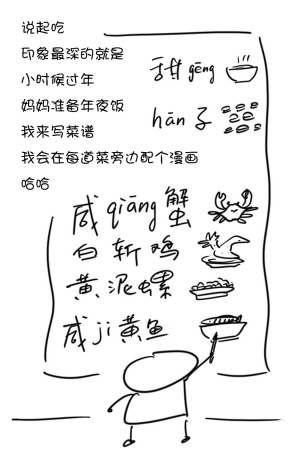 说起吃
印象最深的就是
小时候过年
妈妈准备年夜饭
我来写菜谱
我会在每道菜旁边配个漫画
哈哈
甜gēng
hān子
咸qiāng蟹
白斩鸡
黄泥螺
咸ji黄鱼